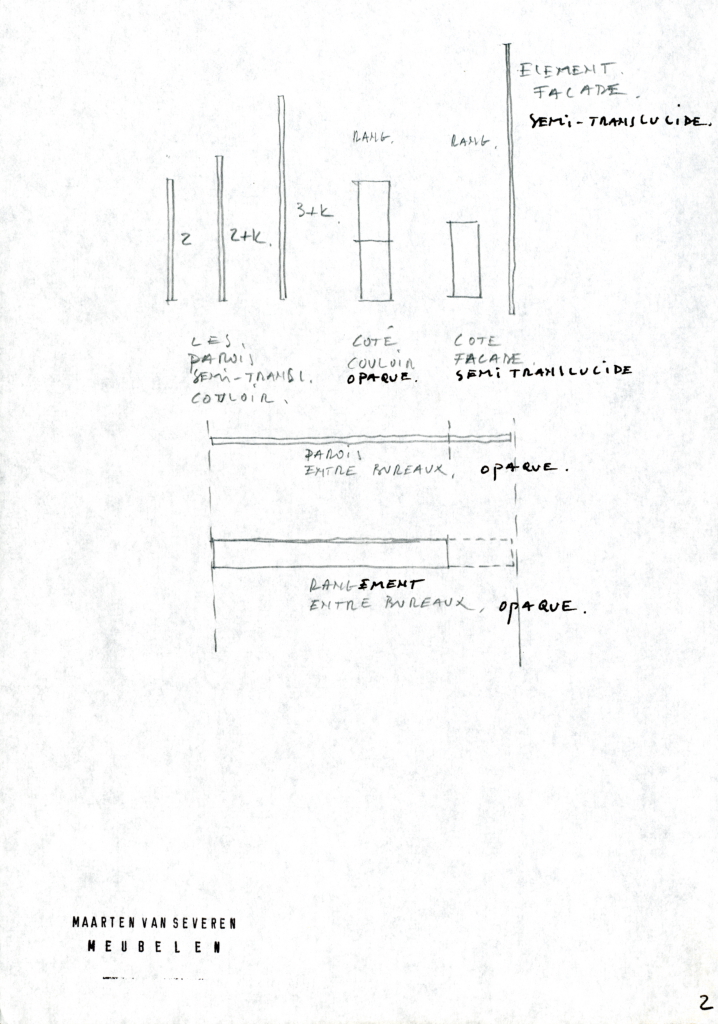 ELEMENT.
FACADE.
SEMI-TRANSLUCIDE.
RANG.
RANG.
2
2+K.
3+K.
LES.
PAROIS
SEMI-TRANSL.
COULOIR.
COTÉ
COULOIR
OPAQUE.
COTE
FACADE.
SEMI TRANSLUCIDE
PAROIS
ENTRE BUREAUX, OPAQUE.
RANGEMENT
ENTRE BUREAUX, OPAQUE.
MAARTEN VAN SEVEREN
MEUBELEN
2